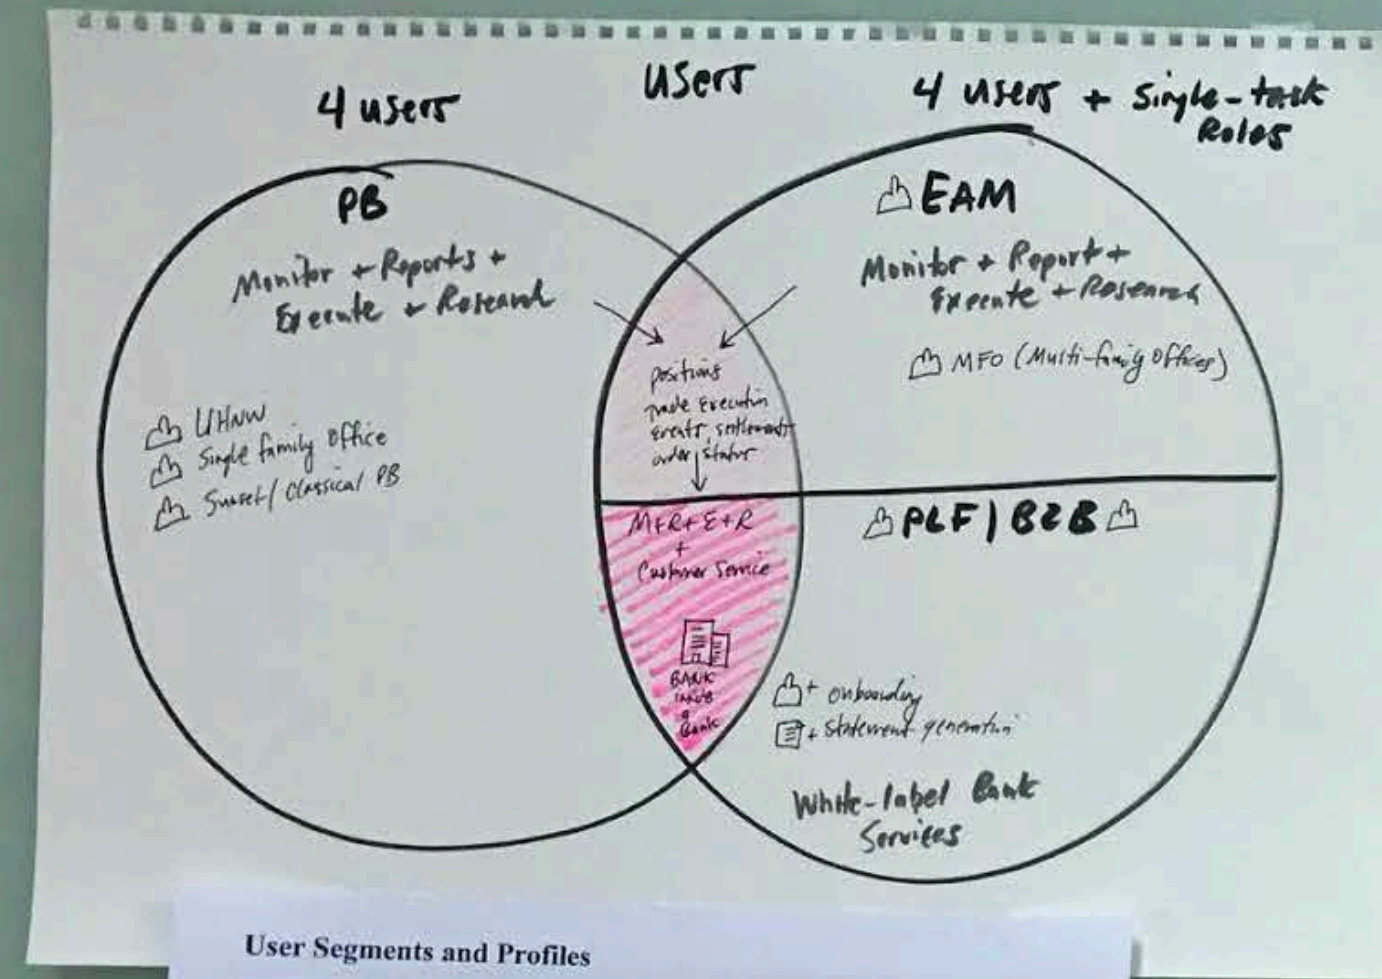 Users
4 users
4 users + Single-task
Roles
PB
Monitor + Reports +
Execute + Research
UHNW
Single family Office
Sunset/ Classical PB
EAM
Monitor + Report +
Execute + Research
MFO (Multi-family Offices)
positions
trade Execution
events, settlements
order status
M+R+E+R
+
Customer Service
BANK
Bank
PLF | B2B
+ onboarding
+ statement generation
White-label Bank
Services
User Segments and Profiles